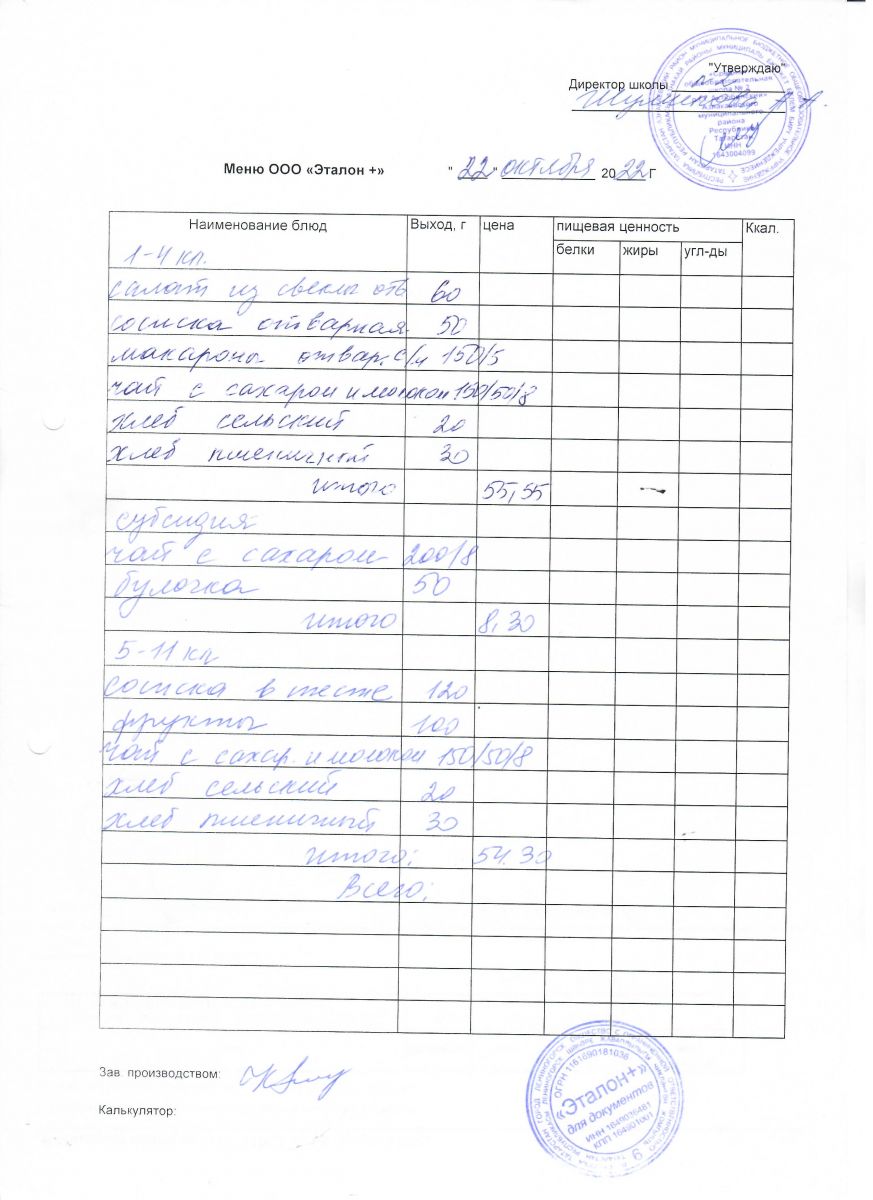 "Утверждаю"
Директор школы
Меню ООО «Эталон +» "22" октября 2022 г
Наименование блюд Выход, г цена пищевая ценность Ккал.
белки жиры угл-ды
1-4 кл.
салат из свеклы отв. 60
сосиска отварная 50
макароны отвар. с/м 150/5
чай с сахаром и молоком 150/50/8
хлеб сельский 20
хлеб пшеничный 30
итого 55,55
субсидия
чай с сахаром 200/8
булочка 50
итого 8,30
5-11 кл
сосиска в тесте 120
фрукты 100
чай с сахар. и молоком 150/50/8
хлеб сельский 20
хлеб пшеничный 30
итого: 54.30
Всего:
Зав. производством:
Калькулятор:
ОГРН 1161690181036
«Эталон+»
для документов
ИНН 1649036481
КПП 164901001
муниципального
района
Республики
Татарстан
ИНН
1643004099